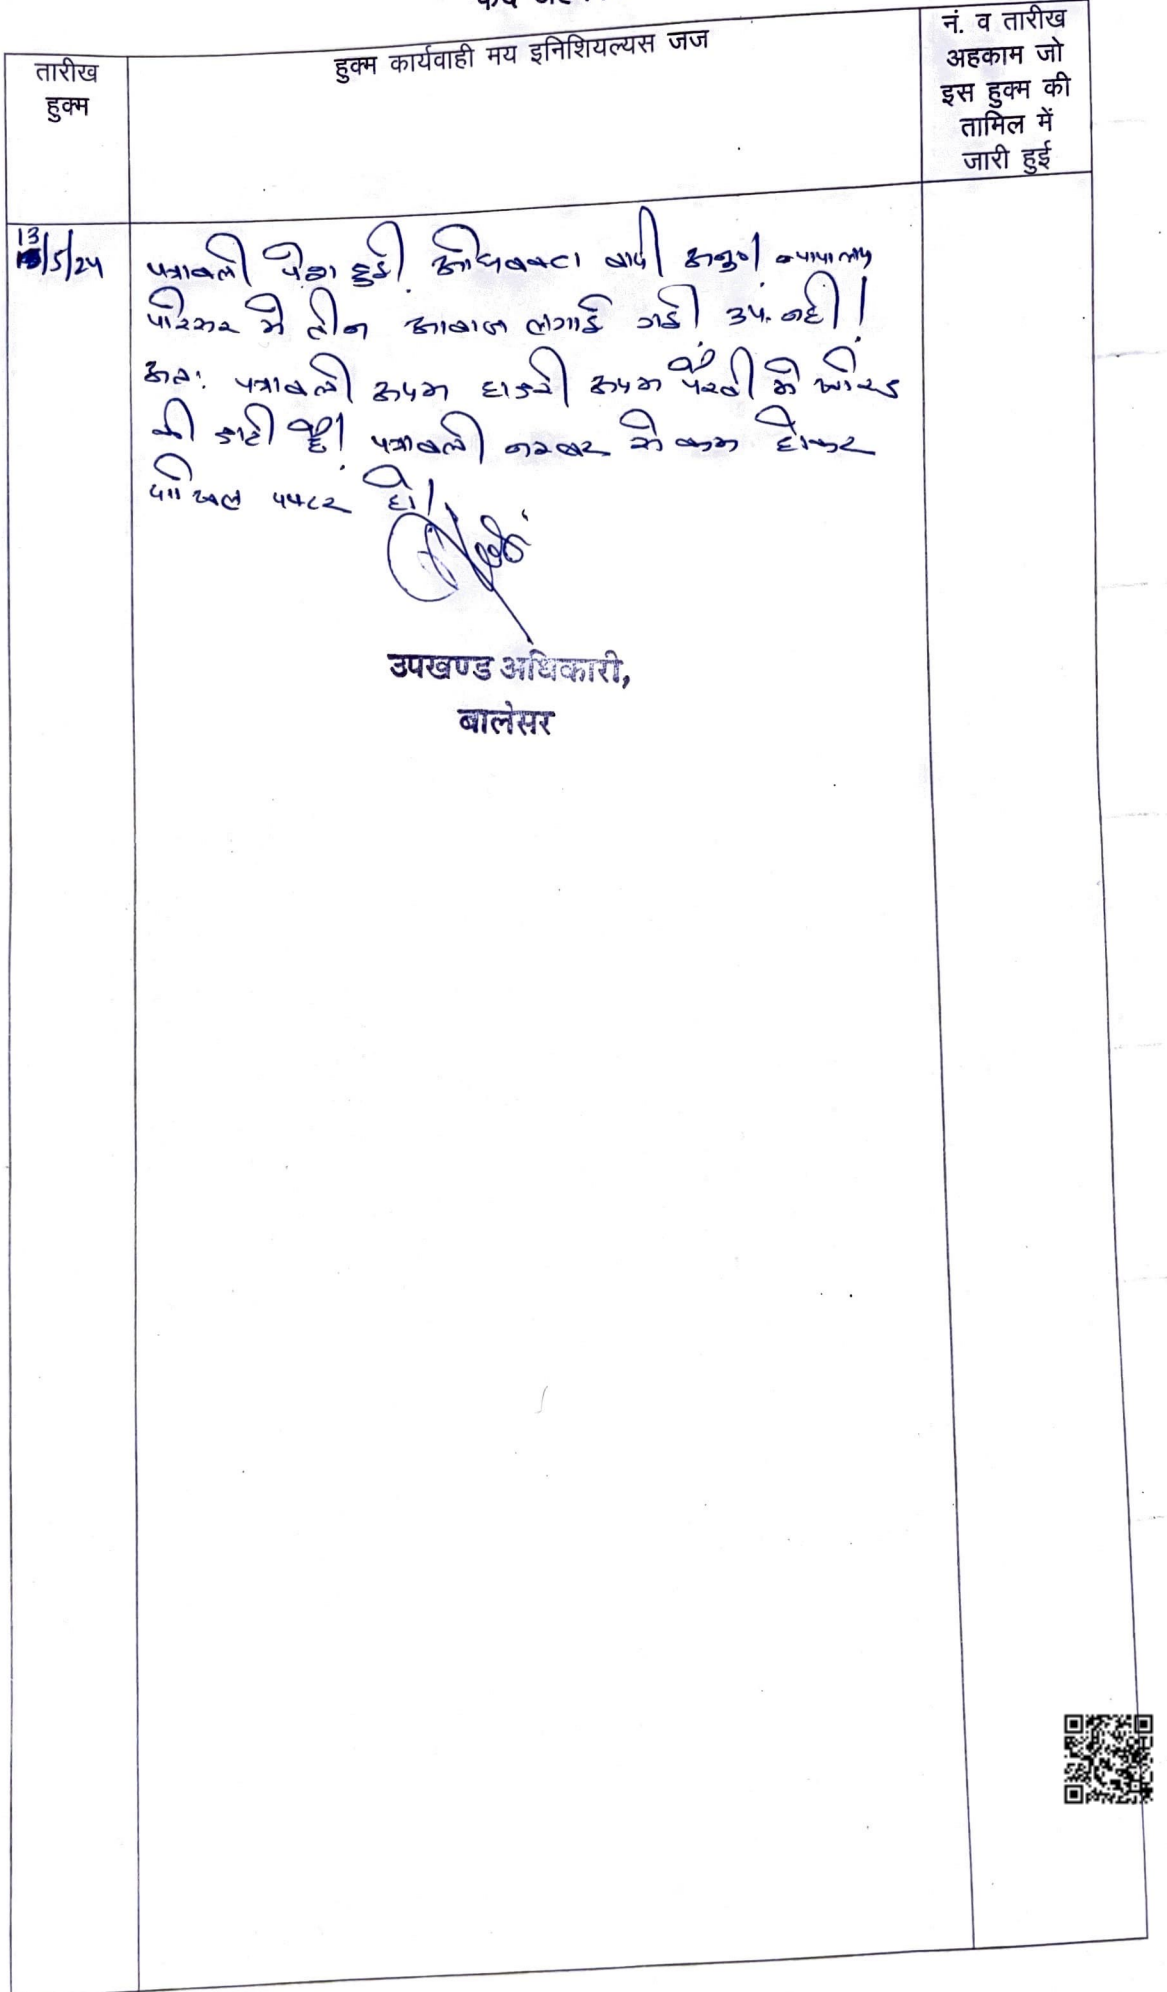 तारीख
हुक्म
हुक्म कार्यवाही मय इनिशियल्यस जज
नं. व तारीख
अहकाम जो
इस हुक्म की
तामिल में
जारी हुई
13/5/24
पत्रावली पेश हुई। अधिवक्ता वादी अनु०। न्यायालय
परिसर में तीन आवाज लगाई गई उप. नहीं।
अतः पत्रावली अदम हाजरी अदम पैरवी में खारिज
की जाती है। पत्रावली नम्बर से कम होकर
दाखिल दफ्तर हो।
उपखण्ड अधिकारी,
बालेसर